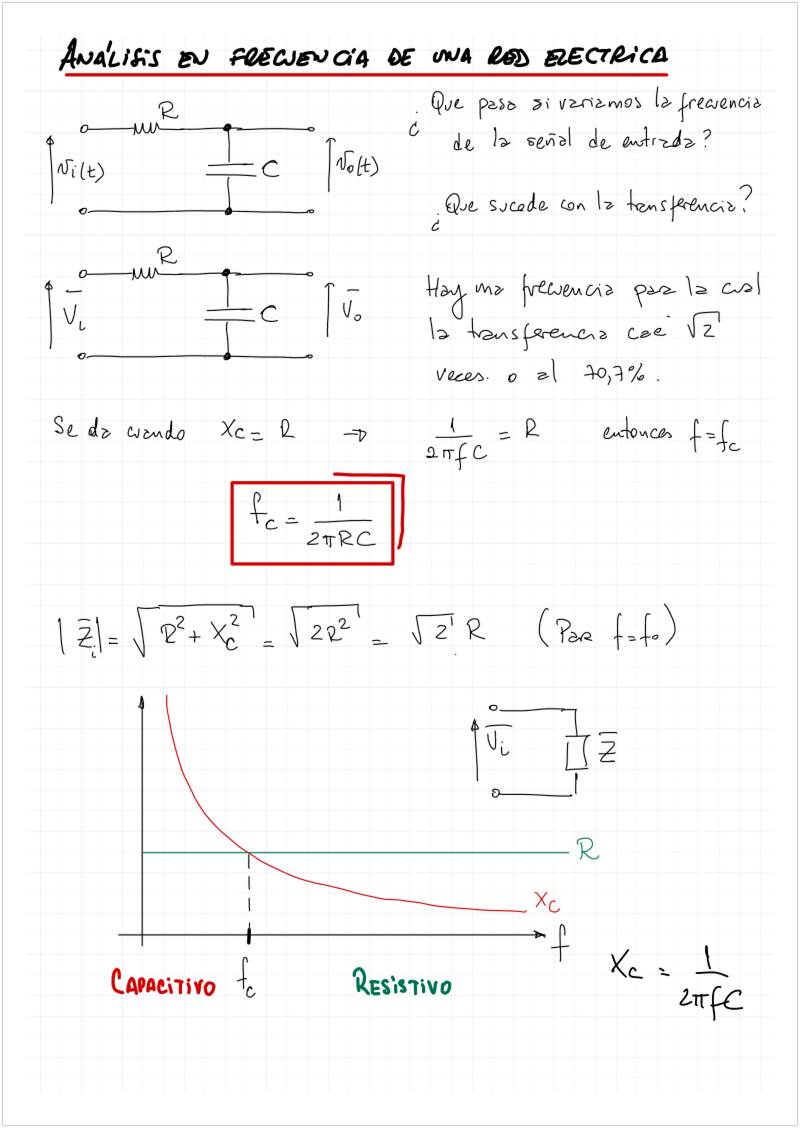 ANÁLISIS EN FRECUENCIA DE UNA RED ELECTRICA
R
C
vi(t)
vo(t)
¿Que pasa si variamos la frecuencia
de la señal de entrada?
¿Que sucede con la transferencia?
R
C
V̅i
V̅o
Hay una frecuencia para la cual
la transferencia cae √2
veces. o al 70,7%.
Se da cuando Xc = R → 1/(2πfC) = R entonces f = fc
fc = 1/(2πRC)
|Z̅i| = √(R² + Xc²) = √(2R²) = √2 R (Par f = fo)
V̅i
Z̅
R
Xc
f
CAPACITIVO fc RESISTIVO
Xc = 1/(2πfC)